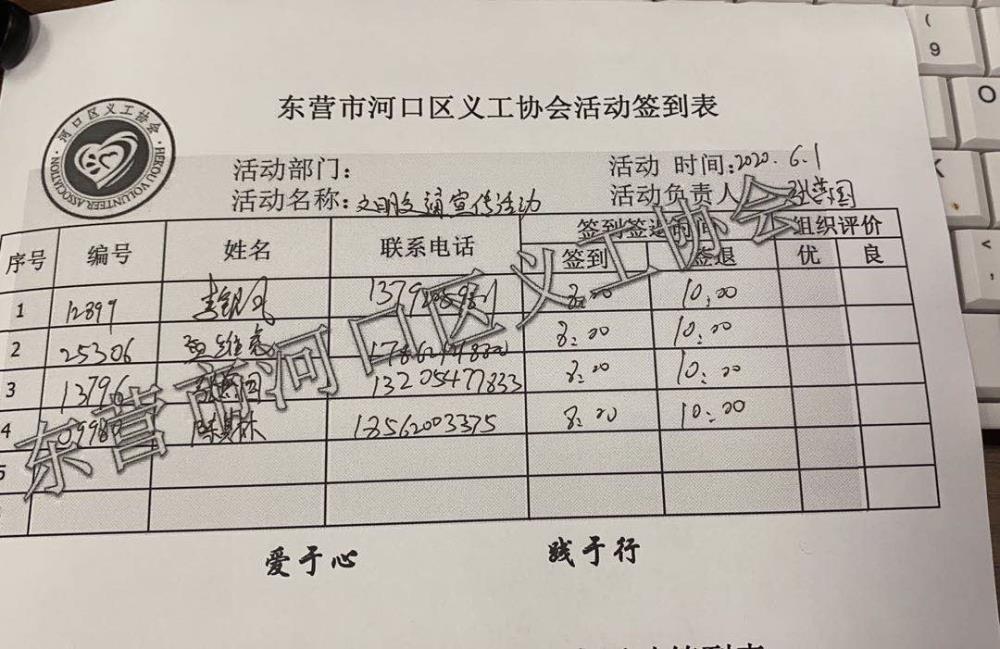 东营市河口区义工协会活动签到表
河口区义工协会
HEKOU VOLUNTEER ASSOCIATION
活动部门:
活动 时间:2020.6.1
活动名称:文明交通宣传活动
活动负责人
序号 编号 姓名 联系电话 签到签退时间 组织评价
签到 签退 优 良
1 12899 8:00 10:00
2 25306 8:00 10:00
3 13796 13205477833 8:00 10:00
4 18562003375 8:00 10:00
5
东营市河口区义工协会
爱于心 践于行
9
O
K